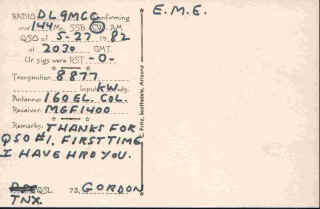 E.M.E.
RADIO DL9MCC Confirming
our 144 Mc. SSB CW AM
QSO of 5-27 1982
at 2030 GMT.
Ur sigs were RST -0-
Transmitter 8877
Input KW.
Antenna: 160 EL. COL.
Receiver: MGF1400
Remarks: THANKS FOR
QSO #1, FIRST TIME
I HAVE HRD YOU.
QSL 73, GORDON
TNX.